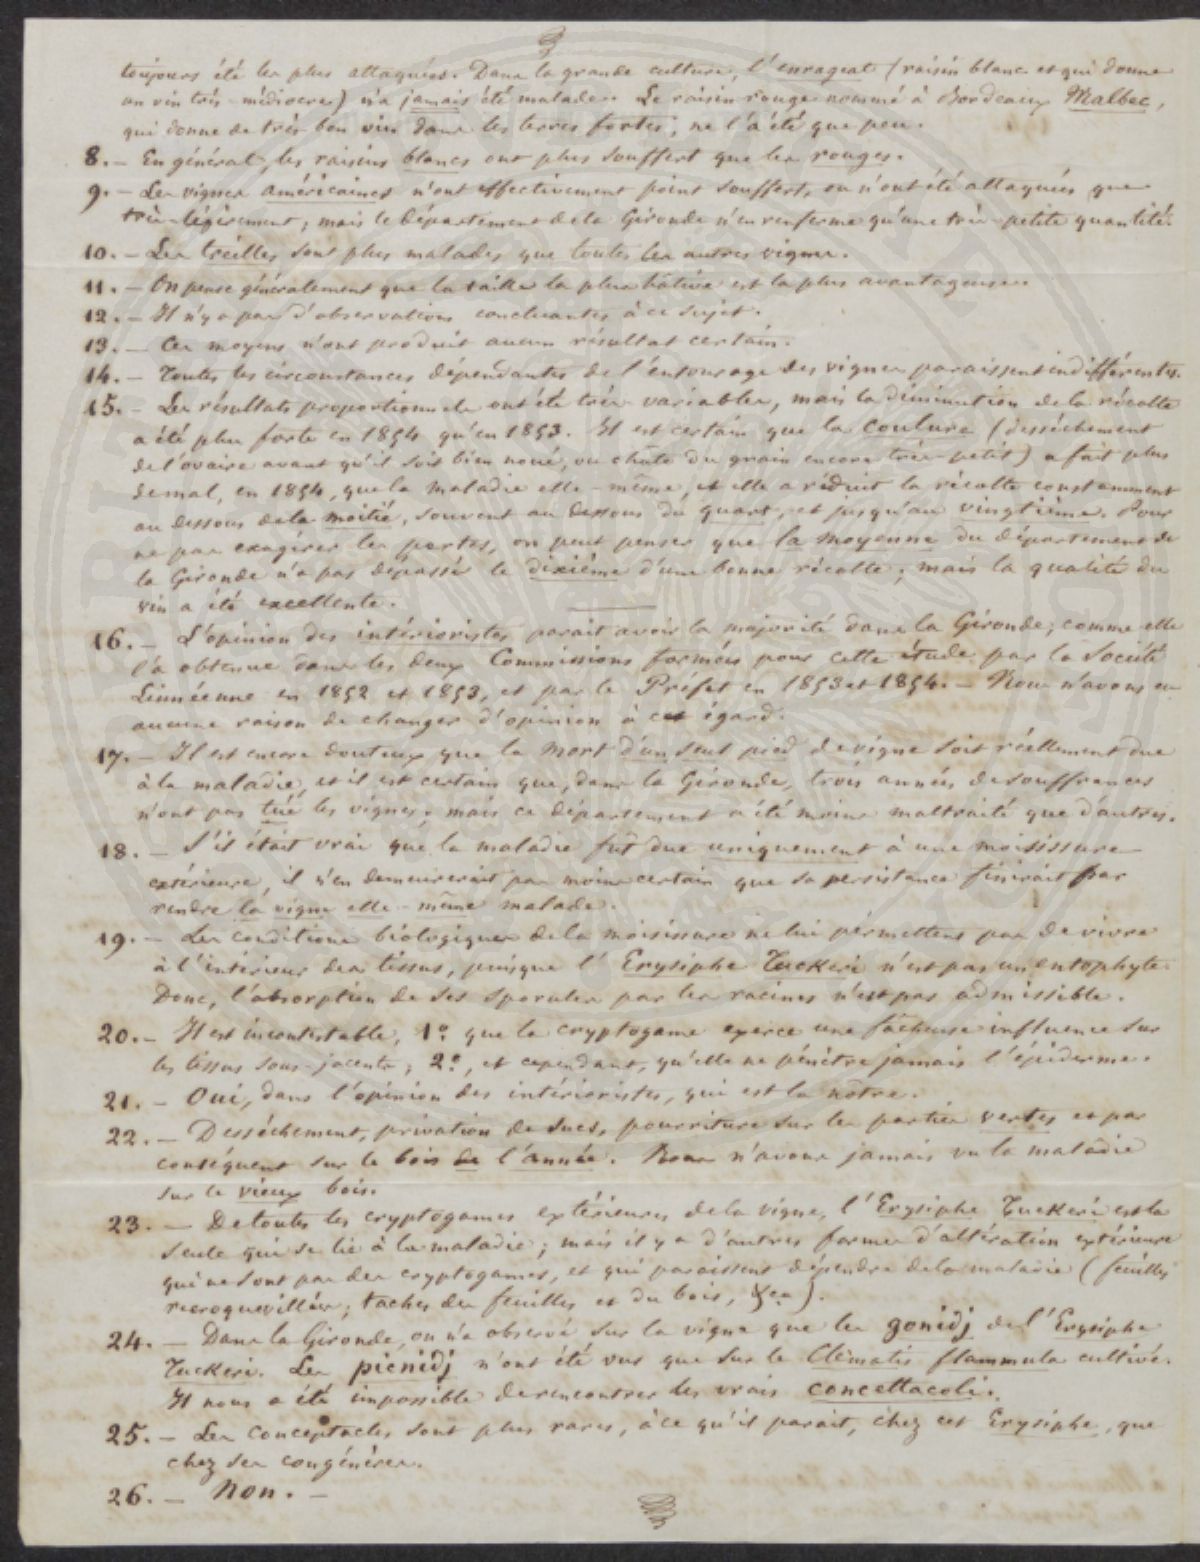 3
toujours été les plus attaquées. Dans la grande culture, l'enrageat (raisin blanc et qui donne
un vin très-médiocre) n'a jamais été malade. Le raisin rouge nommé à Bordeaux Malbec,
qui donne de très bon vin dans les terres fortes, ne l'a été que peu.
8. — En général, les raisins blancs ont plus souffert que les rouges.
9. — Les vignes américaines n'ont effectivement point souffert, ou n'ont été attaquées que
très-légèrement; mais le département de la Gironde n'en renferme qu'une très-petite quantité.
10. — Les treilles sont plus malades que toutes les autres vignes.
11. — On pense généralement que la taille la plus hâtive est la plus avantageuse.
12. — Il n'y a pas d'observations concluantes à ce sujet.
13. — Ces moyens n'ont produit aucun résultat certain.
14. — Toutes les circonstances dépendantes de l'entourage des vignes paraissent indifférentes.
15. — Les résultats proportionnels ont été très variables, mais la diminution de la récolte
a été plus forte en 1854 qu'en 1853. Il est certain que la coulure (dessèchement
de l'ovaire avant qu'il soit bien noué, ou chûte du grain encore très-petit) a fait plus
de mal, en 1854, que la maladie elle-même, et elle a réduit la récolte constamment
au dessous de la moitié, souvent au dessous du quart, et jusqu'au vingtième. Pour
ne pas exagérer les pertes, on peut penser que la moyenne du département de
la Gironde n'a pas dépassé le dixième d'une bonne récolte; mais la qualité du
vin a été excellente.
16. — L'opinion des intérioristes parait avoir la majorité dans la Gironde; comme elle
l'a obtenue dans les deux Commissions formées pour cette étude par la Société
Linnéenne en 1852 et 1853, et par le Préfet en 1853 et 1854. — Nous n'avons eu
aucune raison de changer d'opinion à cet égard.
17. — Il est encore douteux que la mort d'un seul pied de vigne soit réellement due
à la maladie, et il est certain que, dans la Gironde, trois années de souffrances
n'ont pas tué les vignes; mais ce département a été moins maltraité que d'autres.
18. — S'il était vrai que la maladie fut due uniquement à une moisissure
extérieure, il n'en demeurerait pas moins certain que sa persistance finirait par
rendre la vigne elle-même malade.
19. — Les conditions biologiques de la moisissure ne lui permettent pas de vivre
à l'intérieur des tissus, puisque l'Erysiphe Tuckeri n'est pas un entophyte.
Donc, l'absorption de ses sporules par les racines n'est pas admissible.
20. — Il est incontestable, 1.o que la cryptogame exerce une fâcheuse influence sur
les tissus sous-jacents; 2.o, et cependant, qu'elle ne pénètre jamais l'épiderme.
21. — Oui, dans l'opinion des intérioristes, qui est la nôtre.
22. — Dessèchement, privation de sucs, pourriture sur les parties vertes et par
conséquent sur le bois de l'année. Nous n'avons jamais vu la maladie
sur le vieux bois.
23. — De toutes les cryptogames extérieures de la vigne, l'Erysiphe Tuckeri est la
seule qui se lie à la maladie; mais il y a d'autres formes d'altération extérieure
qui ne sont pas des cryptogames, et qui paraissent dépendre de la maladie (feuilles
recroquevillées; taches des feuilles et du bois, &ca).
24. — Dans la Gironde, on n'a observé sur la vigne que les gonidj de l'Erysiphe
Tuckeri. Les picnidj n'ont été vus que sur le Clématis flammula cultivé.
Il nous a été impossible de rencontrer les vrais concettacoli.
25. — Les conceptacles sont plus rares, à ce qu'il parait, chez cet Erysiphe, que
chez ses congénères.
26. — Non. —